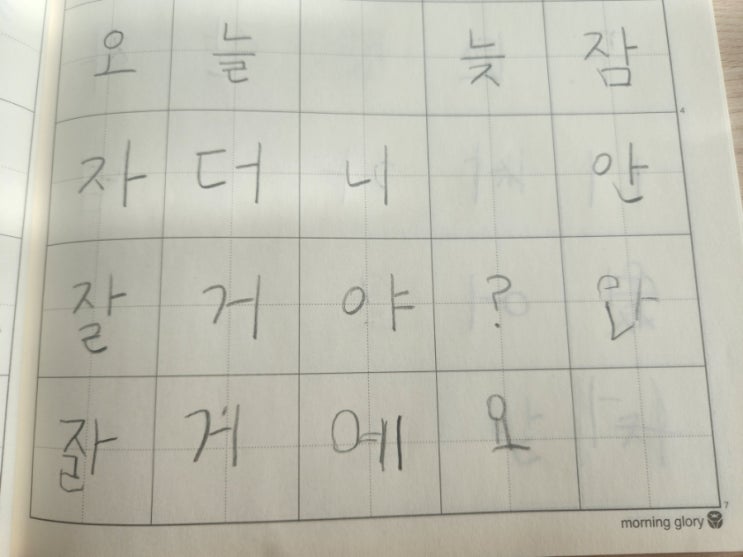 오늘 늦잠
자더니 안
잘거야? 안
잘거예요
4
7
morning glory